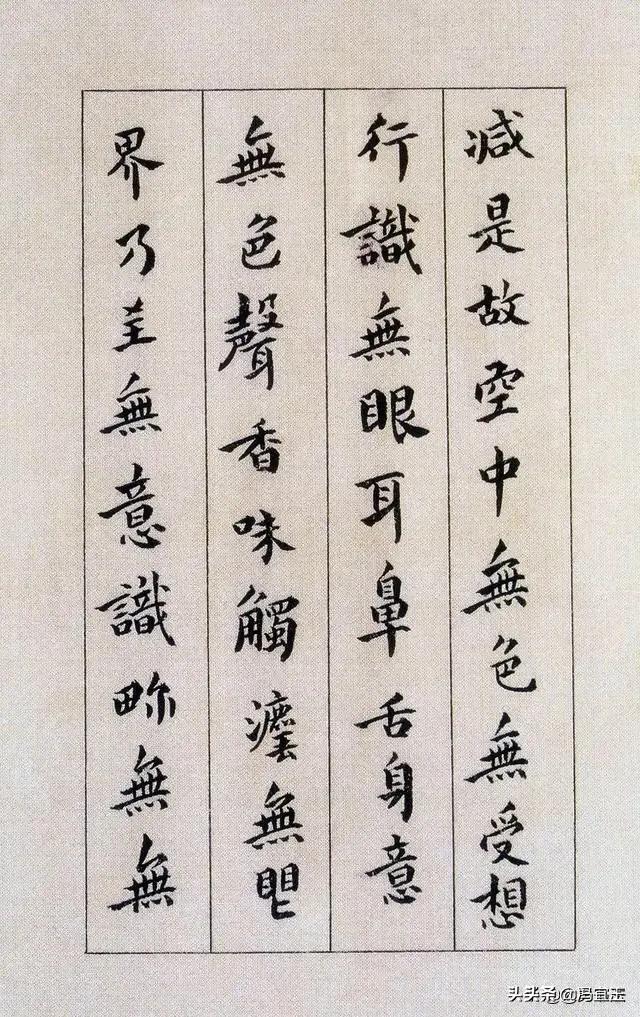 減是故空中無色無受想
行識無眼耳鼻舌身意
無色聲香味觸灋無
界乃至無意識畍無無
头条 @冯宜玉